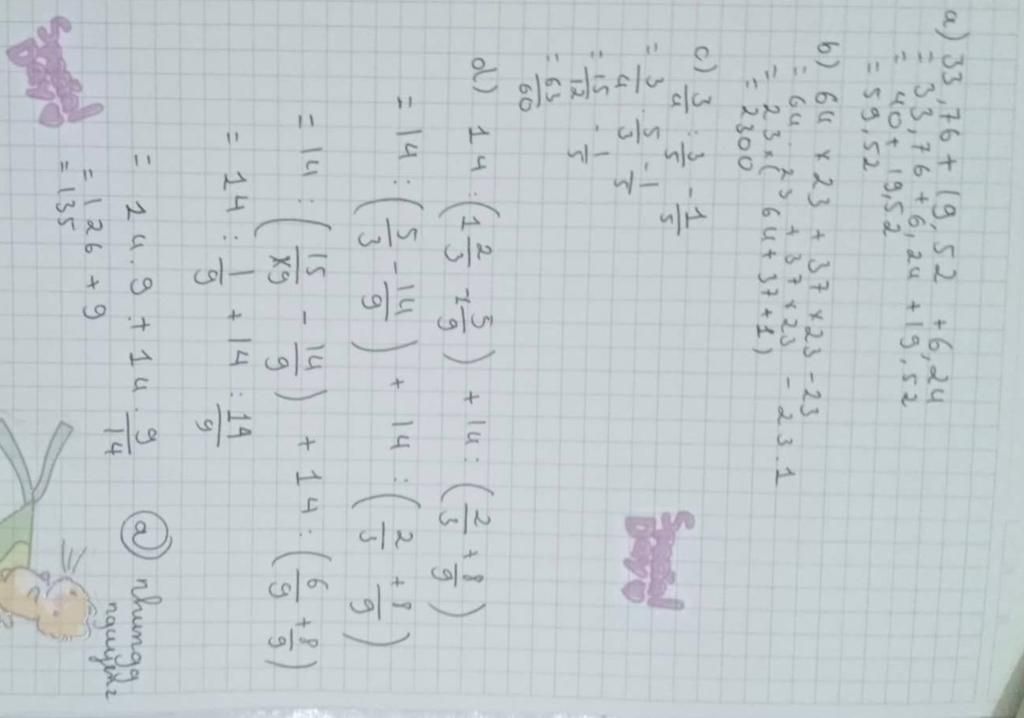 a) 33,76 + 19,52 + 6,24
= 33,76 + 6,24 + 19,52
= 40 + 19,52
= 59,52
b) 64 × 23 + 37 × 23 - 23
= 64 . 23 + 37 × 23 - 23 . 1
= 23 × ( 64 + 37 + 1 )
= 2300
c) 3/4 : 3/5 - 1/5
= 3/4 . 5/3 - 1/5
= 15/12 . 1/5
= 63/60
d) 14 : ( 1 2/3 - 1 5/9 ) + 14 : ( 2/3 + 8/9 )
= 14 : ( 5/3 - 14/9 ) + 14 : ( 2/3 + 8/9 )
= 14 : ( 15/9 - 14/9 ) + 14 : ( 6/9 + 8/9 )
= 14 : 1/9 + 14 : 14/9
= 14 . 9 + 14 . 9/14
= 126 + 9
= 135
Special Day
Special Day
@